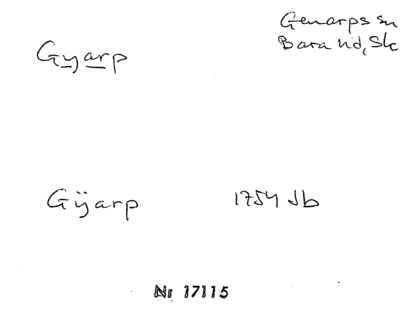 Gyarp
Genarps sn
Bara hd, Sk
Gÿarp
1754 Jb
Nr 17115